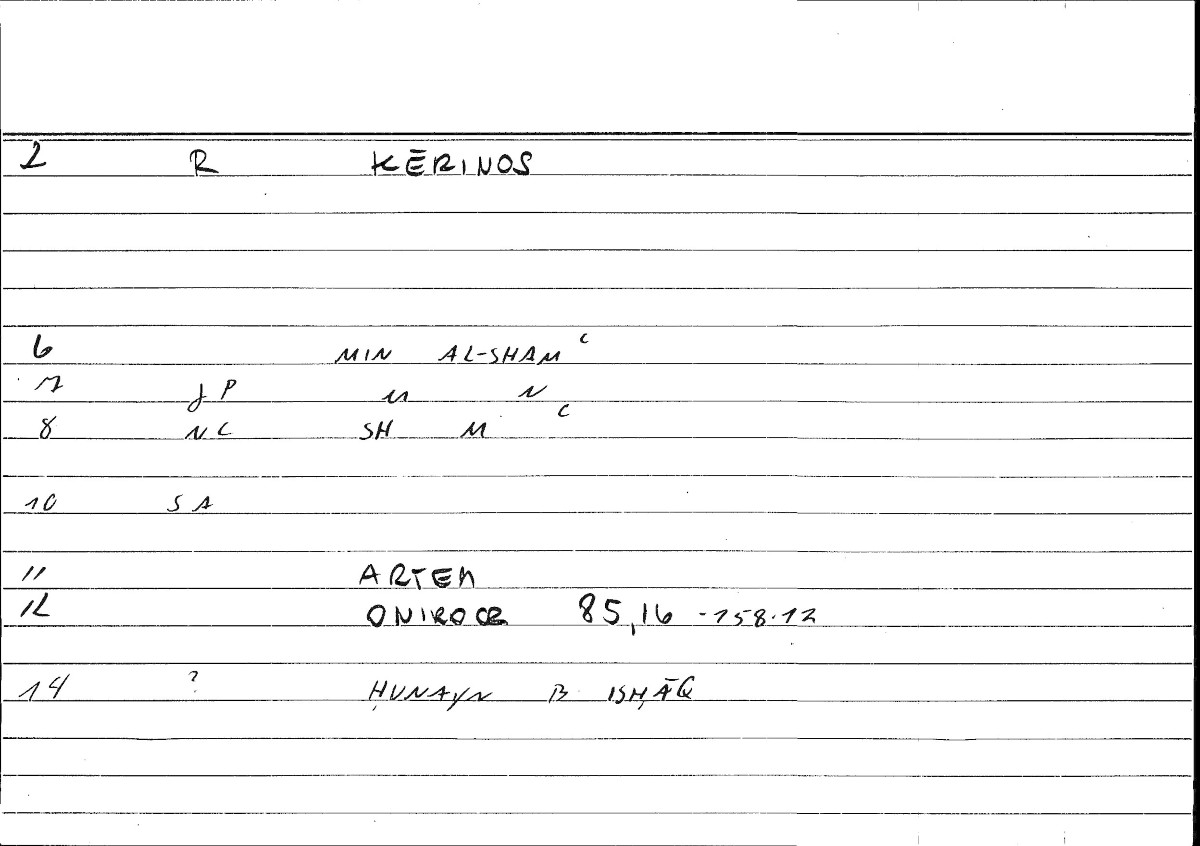 2 R KĒRINOS
6 MIN AL-SHAMʿ
7 JP M N
8 NC SH M ʿ
10 SA
11 ARTEM
12 ONIROCR 85,16 -158.12
14 ? ḤUNAYN B ISḤĀQ